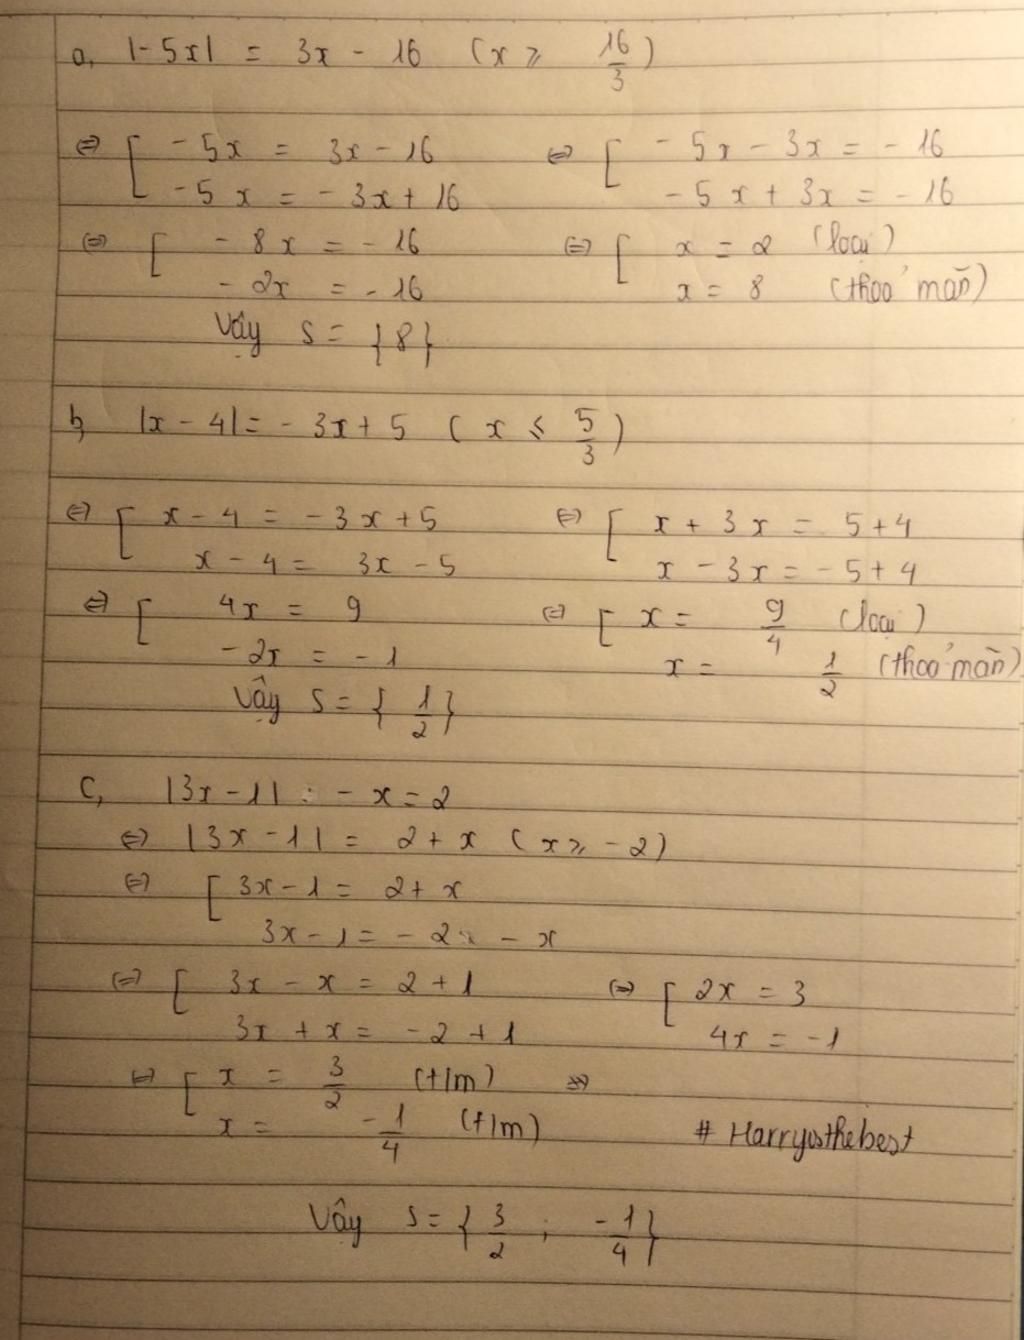 a, |-5x| = 3x - 16 (x ≥ 16/3)
⇔ [ -5x = 3x - 16 ⇔ [ -5x - 3x = -16
-5x = -3x + 16 -5x + 3x = -16
⇔ [ -8x = -16 ⇔ [ x = 2 (loại)
-2x = -16 x = 8 (thoả mãn)
Vậy S = {8}
b, |x - 4| = -3x + 5 (x ≤ 5/3)
⇔ [ x - 4 = -3x + 5 ⇔ [ x + 3x = 5 + 4
x - 4 = 3x - 5 x - 3x = -5 + 4
⇔ [ 4x = 9 ⇔ [ x = 9/4 (loại)
-2x = -1 x = 1/2 (thoả mãn)
Vậy S = {1/2}
c, |3x - 1| - x = 2
⇔ |3x - 1| = 2 + x (x ≥ -2)
⇔ [ 3x - 1 = 2 + x
3x - 1 = -2 - x
⇔ [ 3x - x = 2 + 1 ⇔ [ 2x = 3
3x + x = -2 + 1 4x = -1
⇔ [ x = 3/2 (t/m)
x = -1/4 (t/m) # Harryisthebest
Vậy S = {3/2 ; -1/4}